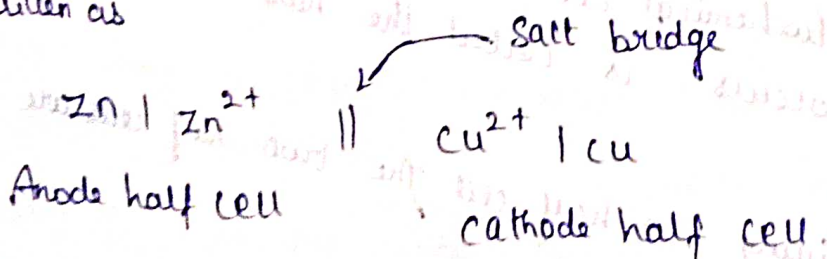 as
Salt bridge
Zn | Zn²⁺ || Cu²⁺ | Cu
Anode half cell
cathode half cell.